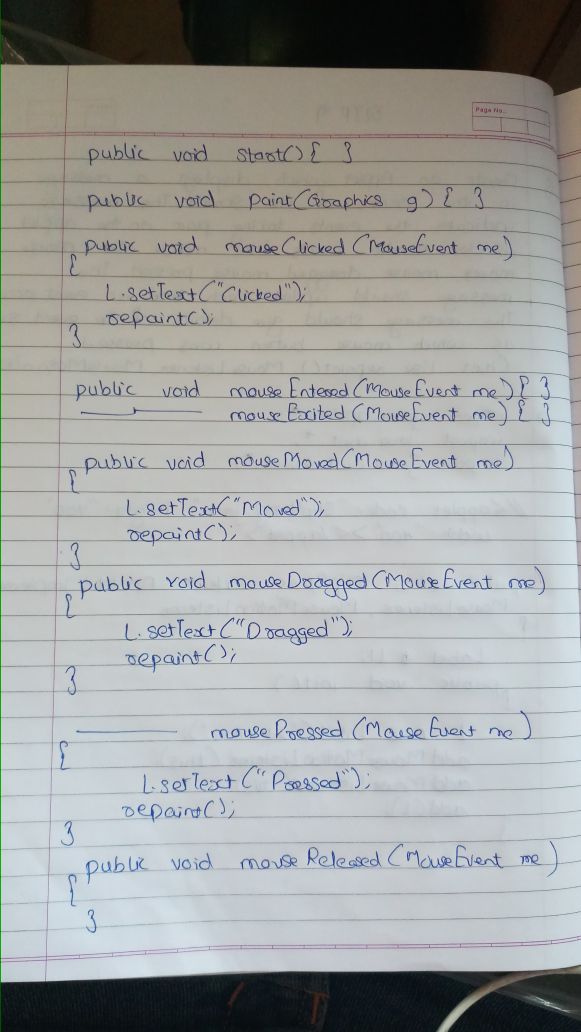 Page No.
public void start() { }
public void paint(Graphics g) { }
public void mouseClicked (MouseEvent me)
{
L.setText("Clicked");
repaint();
}
public void mouseEntered (MouseEvent me) { }
mouseExited (MouseEvent me) { }
public void mouseMoved(MouseEvent me)
{
L.setText("Moved");
repaint();
}
public void mouseDragged (MouseEvent me)
{
L.setText("Dragged");
repaint();
}
mousePressed (MouseEvent me)
{
L.setText("Pressed");
repaint();
}
public void mouseReleased (MouseEvent me)
{
}